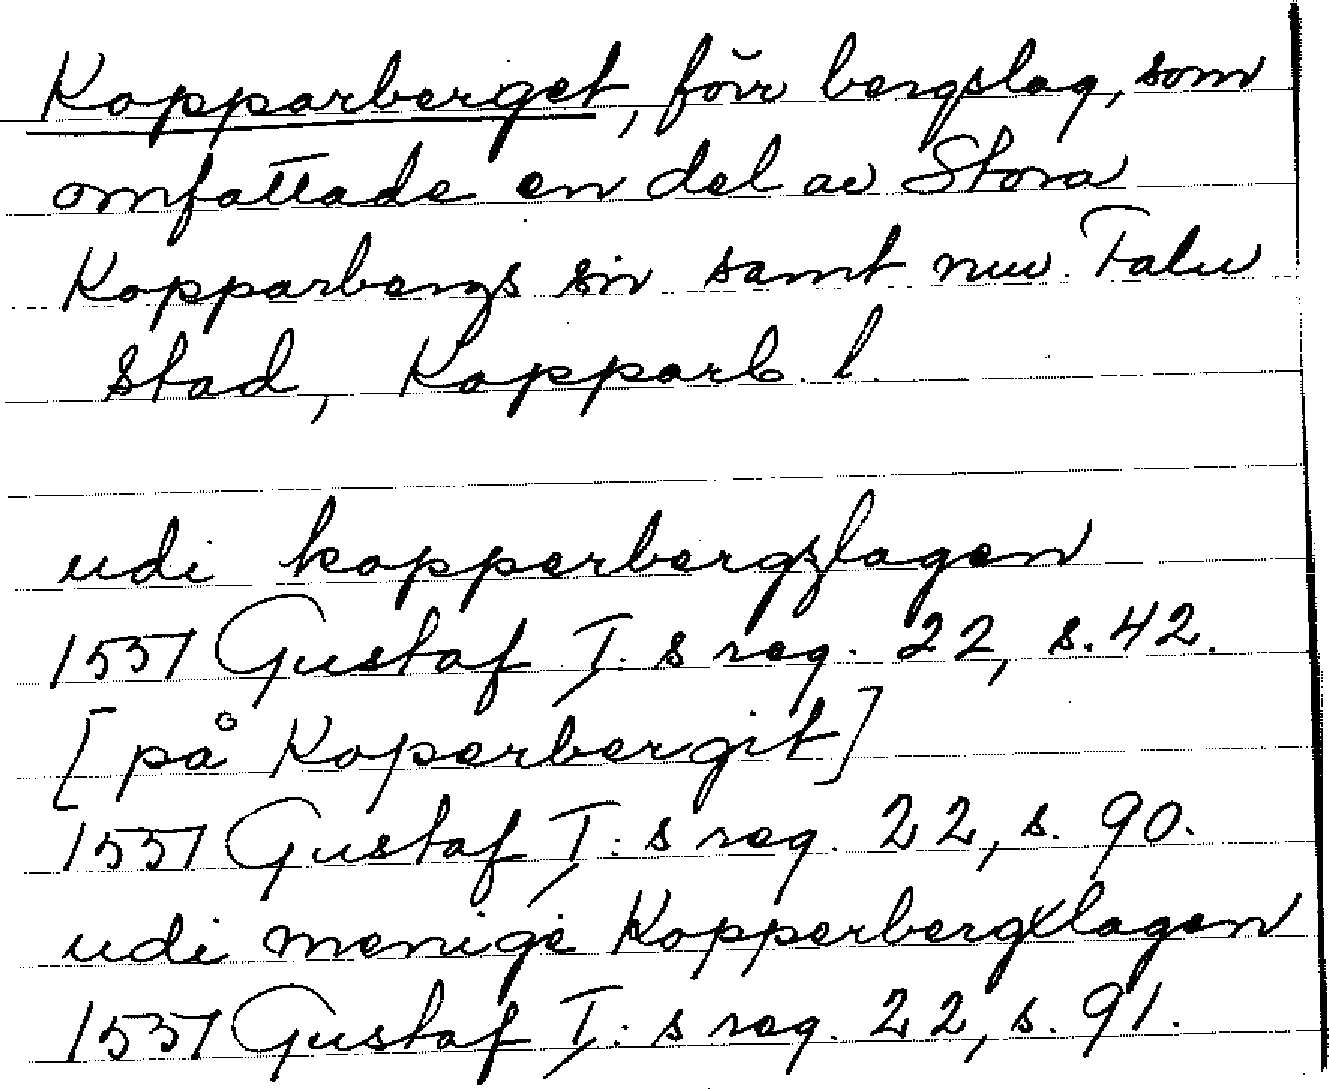 Kopparberget, förr bergslag, som
omfattade en del av Stora
Kopparbergs sn samt nuv. Falu
stad, Kopparb. l.
udi kopperbergzlagen
1551 Gustaf I: s reg. 22, s. 42.
[på Koperbergit]
1551 Gustaf I: s reg. 22, s. 90.
udi menige Kopperbergxlagen
1551 Gustaf I: s reg. 22, s. 91.